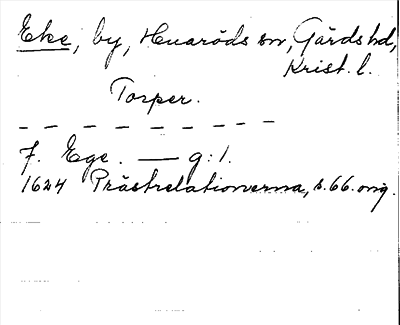 Eke, by, Huaröds sn, Gärds hd,
Krist. l.
Torper.
- - - - - - - - - -
F. Ege. — g:1.
1624 Prästrelationerna, s. 66. orig.